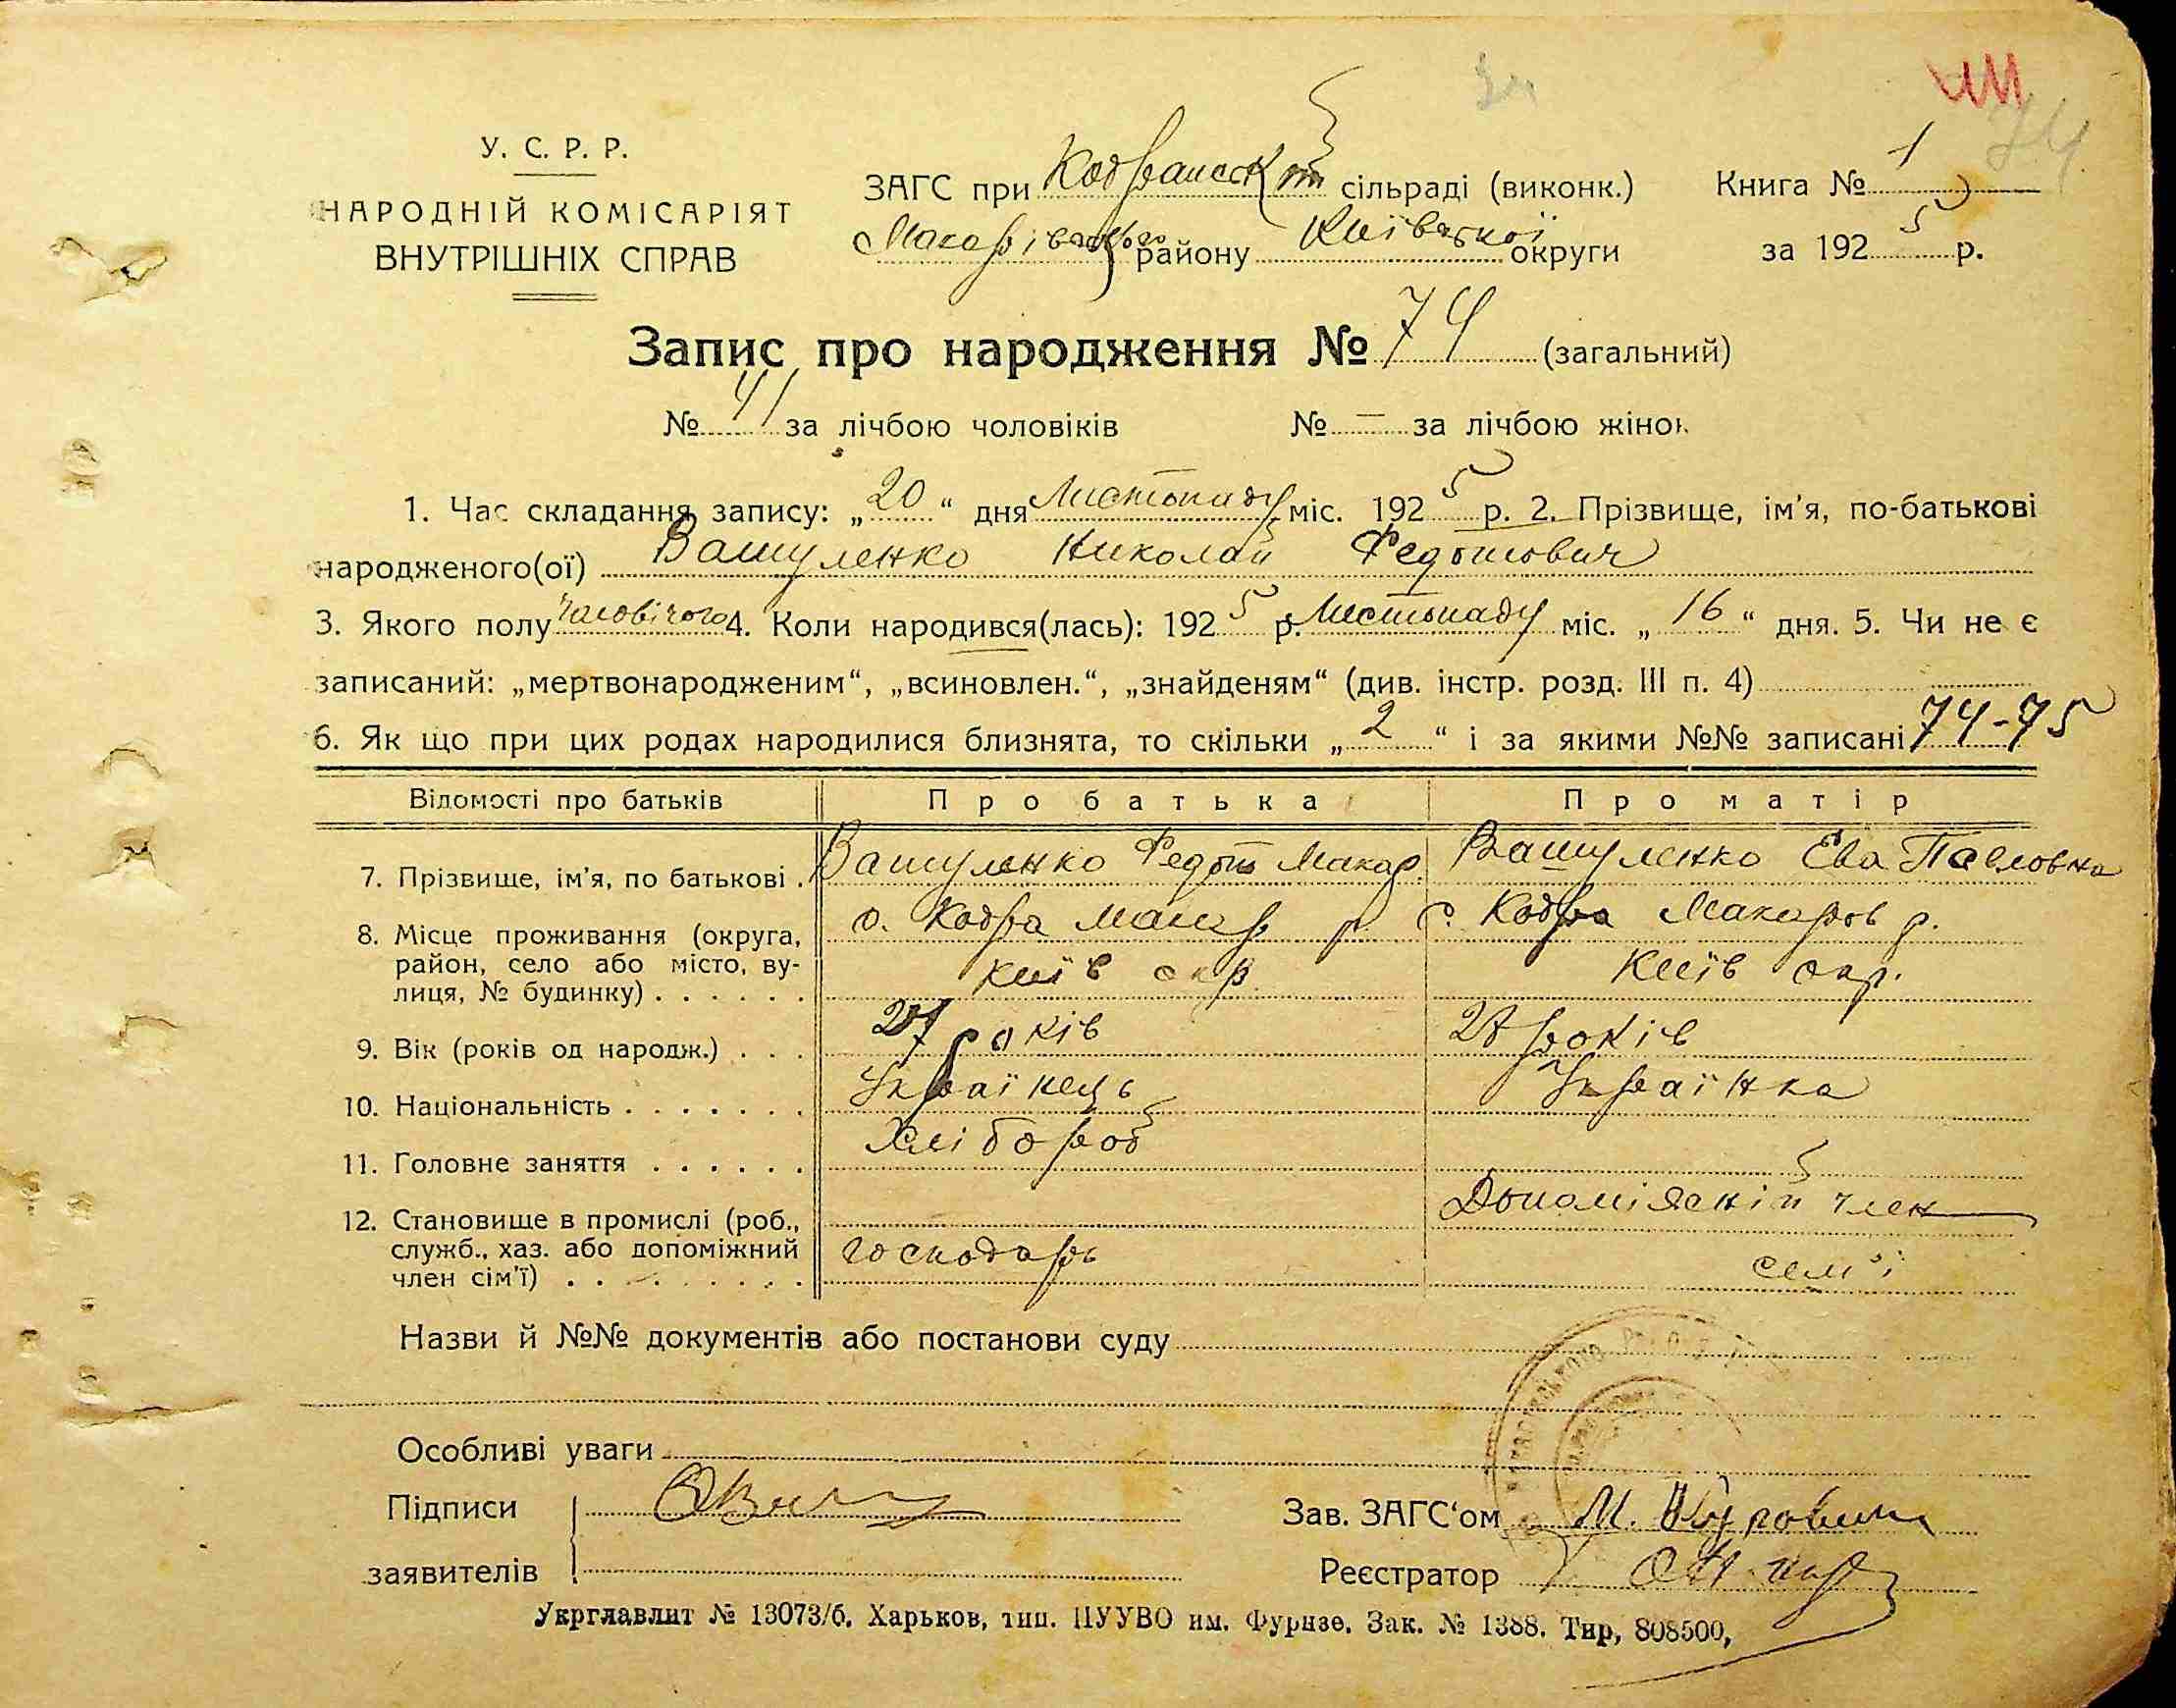 74
У. С. Р. Р.
НАРОДНІЙ КОМІСАРІЯТ
ВНУТРІШНІХ СПРАВ
ЗАГС при Кодранской сільраді (виконк.)
Макарівського району Київської округи
Книга № 1
за 1925 р.
Запис про народження № 74 (загальний)
№ 41 за лічбою чоловіків № — за лічбою жінок
1. Час складання запису: „20“ дня Листопаду міс. 1925 р. 2. Прізвище, ім’я, по-батькові
народженого(ої) Вашуленко Николай Федотович
3. Якого полу чоловічого 4. Коли народився(лась): 1925 р. Листопаду міс. „16“ дня. 5. Чи не є
записаний: „мертвонародженим“, „всиновлен.“, „знайденям“ (див. інстр. розд. III п. 4)
6. Як що при цих родах народилися близнята, то скільки „2“ і за якими №№ записані 74-75
Відомості про батьків Про батька Про матір
7. Прізвище, ім’я, по батькові . Вашуленко Федот Макар. Вашуленко Ева Павловна
8. Місце проживання (округа, район, село або місто, вулиця, № будинку) . . . . . . с. Кодра Макар р. Київ окр с. Кодра Макаров р. Київ окр.
9. Вік (років од народж.) . . . 27 років 27 років
10. Національність . . . . . . . Українець Українка
11. Головне заняття . . . . . . Хлібороб
12. Становище в промислі (роб., служб., хаз. або допоміжний член сім’ї) . . . . . . . . . господарь Допоміжній член сем’ї
Назви й №№ документів або постанови суду
Особливі уваги
Підписи
заявителів
Зав. ЗАГС‘ом М.
Реєстратор
Укрглавлит № 13073/б. Харьков, тип. ПУУВО им. Фрунзе. Зак. № 1388. Тир, 808500,